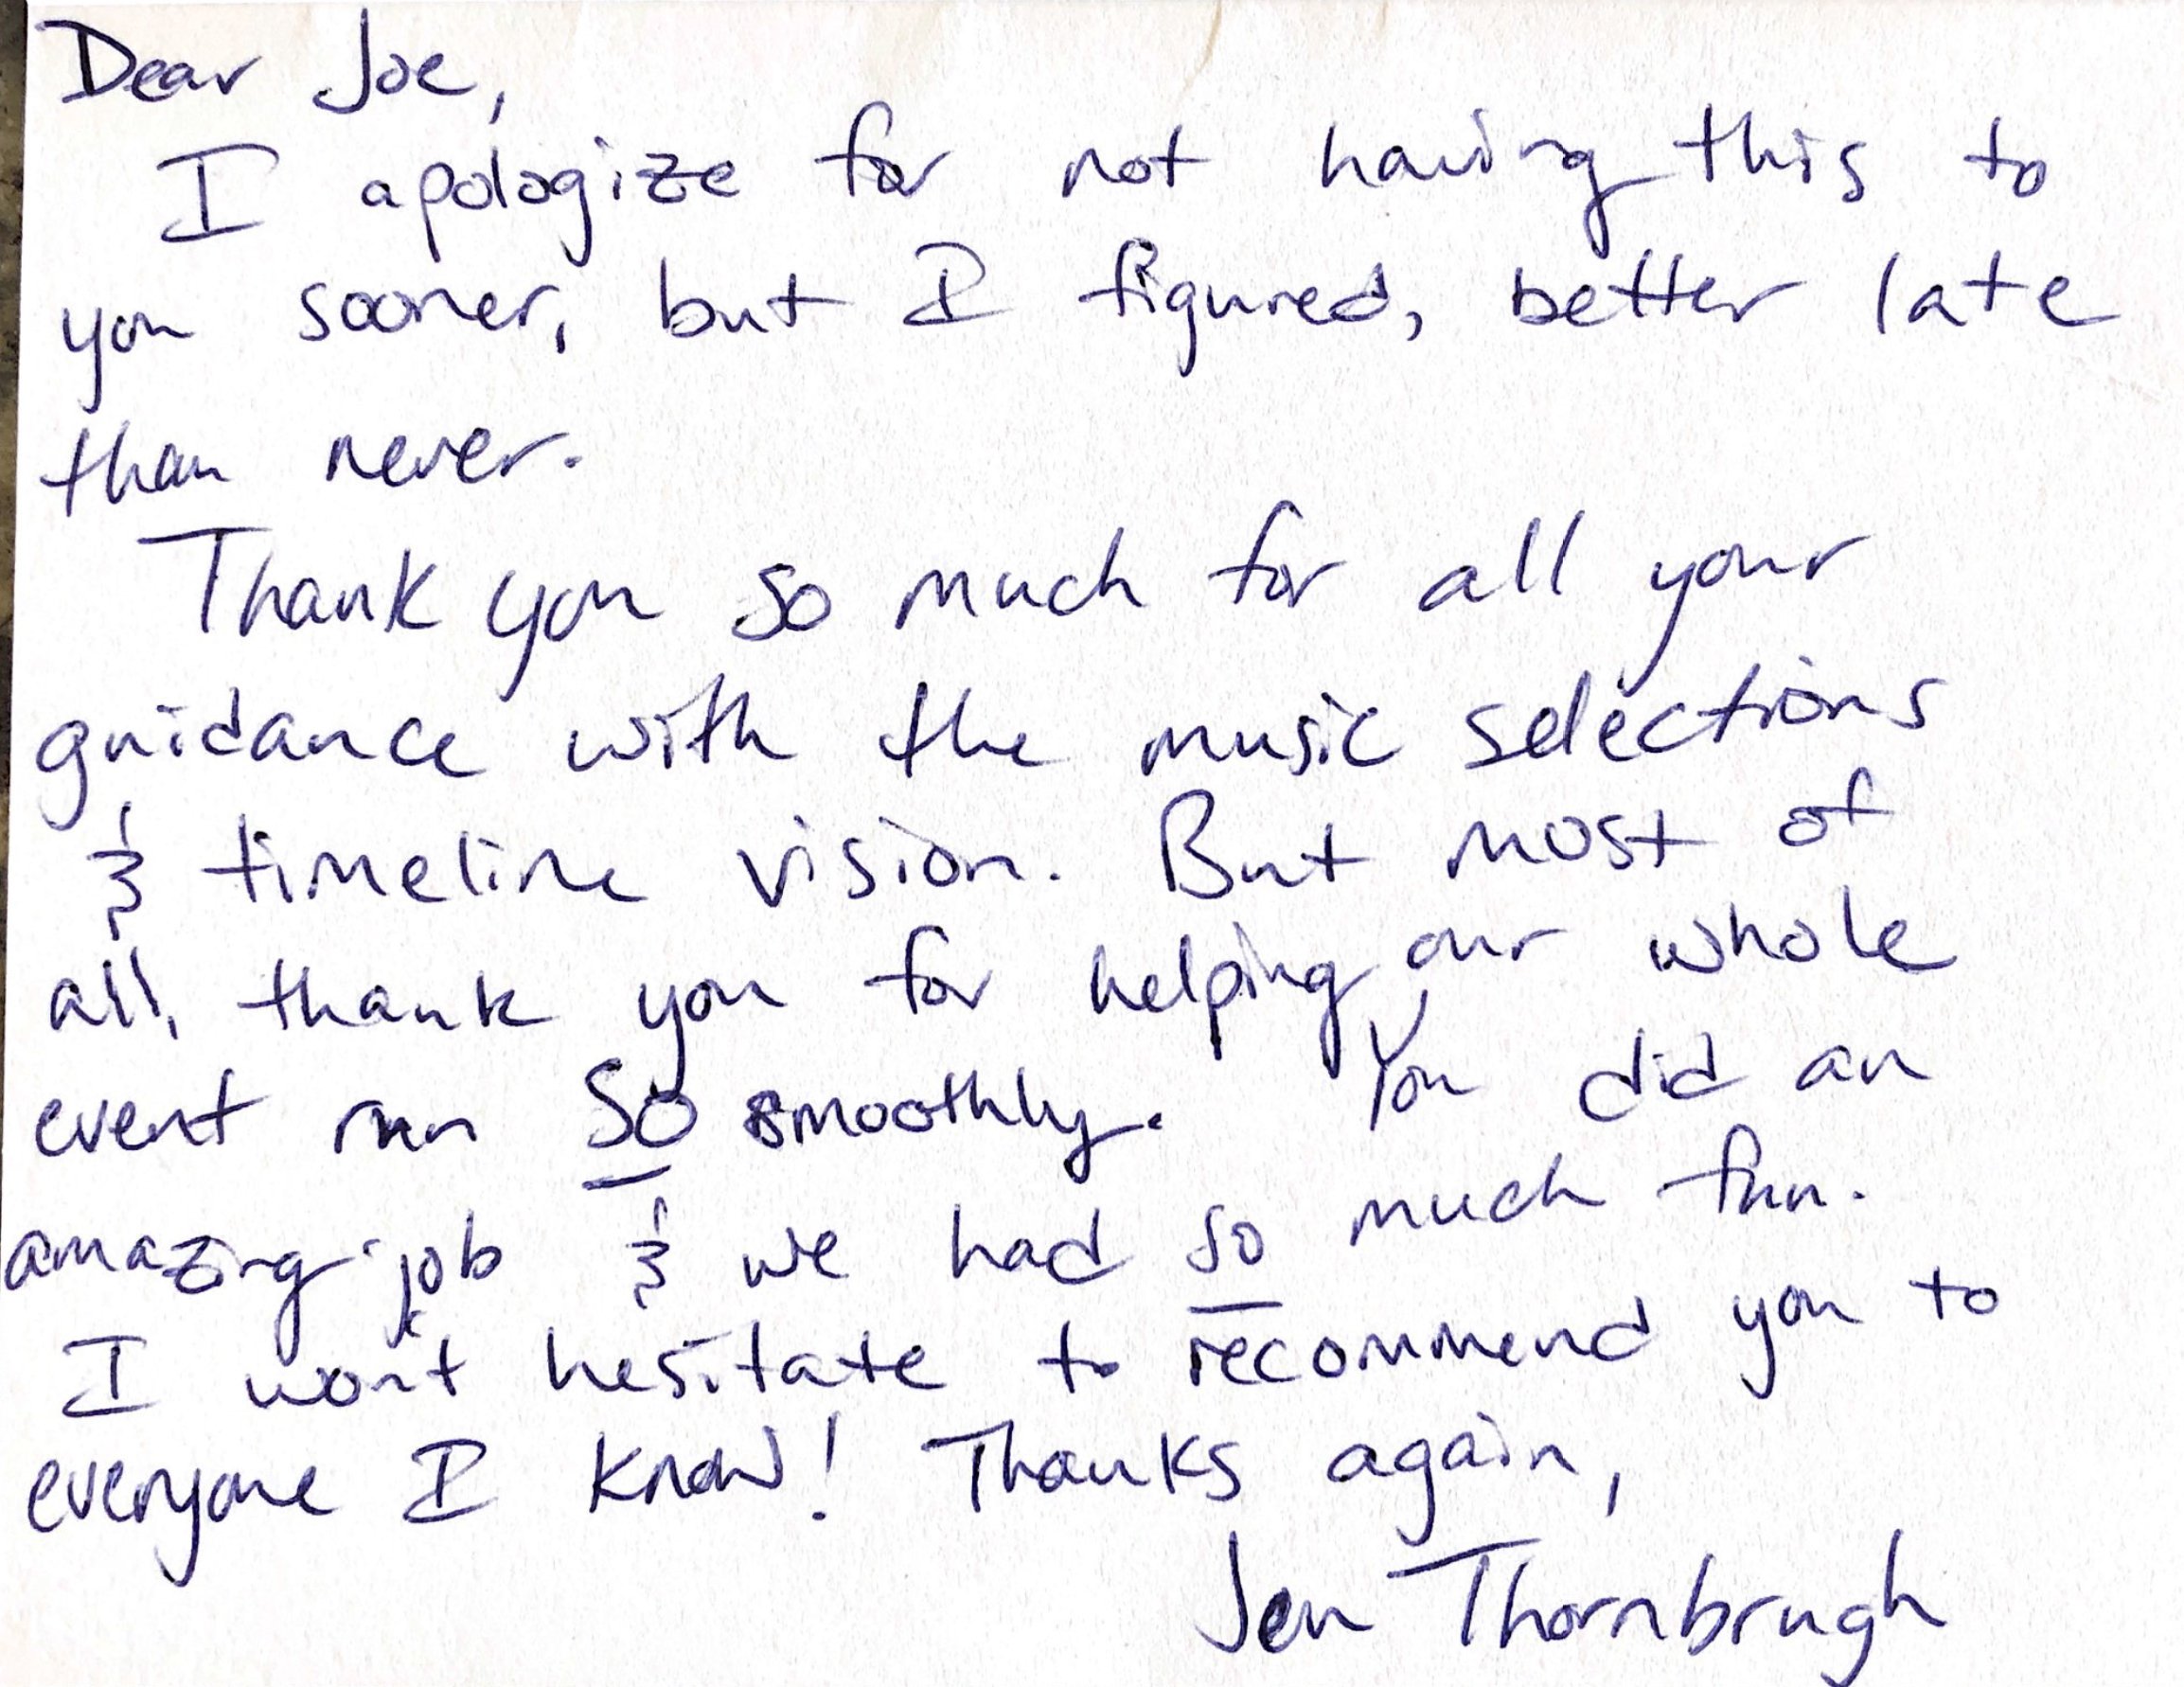 Dear Joe,
I apologize for not having this to
you sooner, but I figured, better late
than never.
Thank you so much for all your
guidance with the music selections
& timeline vision. But most of
all, thank you for helping our whole
event run SO smoothly. You did an
amazing job & we had so much fun.
I won't hesitate to recommend you to
everyone I know! Thanks again,
Jen Thornbrugh